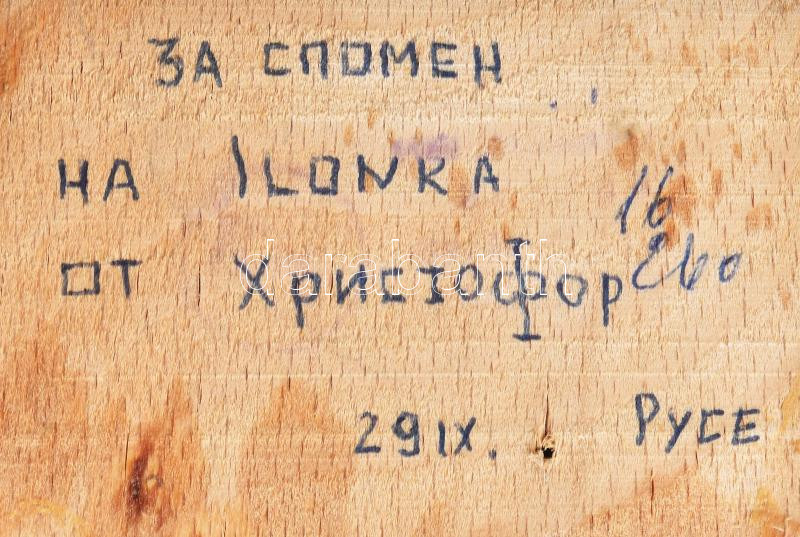 ЗА СПОМЕН
НА ILONKA
16
ОТ Христофор
29 IX. РУСЕ
darabanth